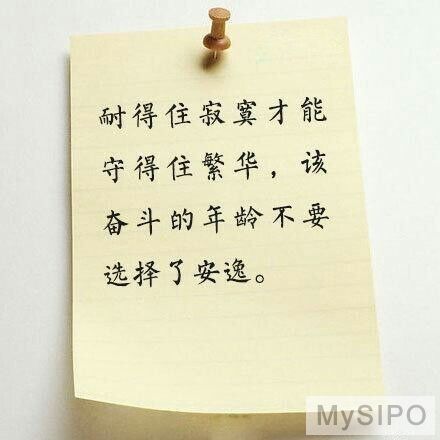 耐得住寂寞才能
守得住繁华，该
奋斗的年龄不要
选择了安逸。
MySIPO